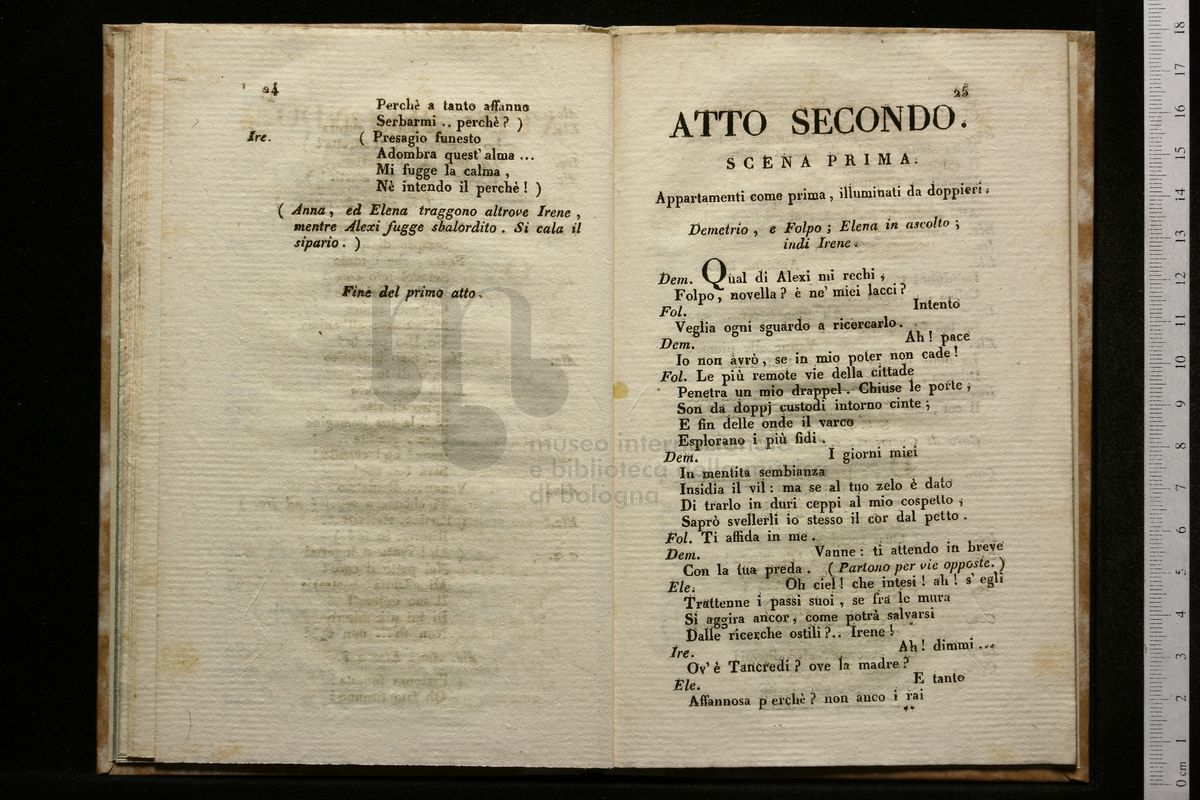 24
Perchè a tanto affanno
Serbarmi .. perchè ? )
Ire. ( Presagio funesto
Adombra quest' alma ...
Mi fugge la calma ,
Nè intendo il perchè ! )
( Anna , ed Elena traggono altrove Irene ,
mentre Alexi fugge sbalordito . Si cala il
sipario . )
Fine del primo atto .
25
ATTO SECONDO.
SCENA PRIMA.
Appartamenti come prima , illuminati da doppieri .
Demetrio , e Folpo ; Elena in ascolto ;
indi Irene .
Dem. Qual di Alexi mi rechi ,
Folpo , novella ? è ne' miei lacci ?
Fol. Intento
Veglia ogni sguardo a ricercarlo .
Dem. Ah ! pace
Io non avrò , se in mio poter non cade !
Fol. Le più remote vie della cittade
Penetra un mio drappel . Chiuse le porte ,
Son da doppj custodi intorno cinte ;
E fin delle onde il varco
Esplorano i più fidi .
Dem. I giorni miei
In mentita sembianza
Insidia il vil : ma se al tuo zelo è dato
Di trarlo in duri ceppi al mio cospetto ,
Saprò svellerli io stesso il cor dal petto .
Fol. Ti affida in me .
Dem. Vanne : ti attendo in breve
Con la tua preda . ( Partono per vie opposte . )
Ele. Oh ciel ! che intesi ! ah ! s' egli
Trattenne i passi suoi , se fra le mura
Si aggira ancor , come potrà salvarsi
Dalle ricerche ostili ? .. Irene !
Ire. Ah ! dimmi ...
Ov' è Tancredi ? ove la madre ?
Ele. E tanto
Affannosa perchè ? non anco i rai
**
museo internazionale
e biblioteca della
di bologna
0 cm 1 2 3 4 5 6 7 8 9 10 11 12 13 14 15 16 17 18